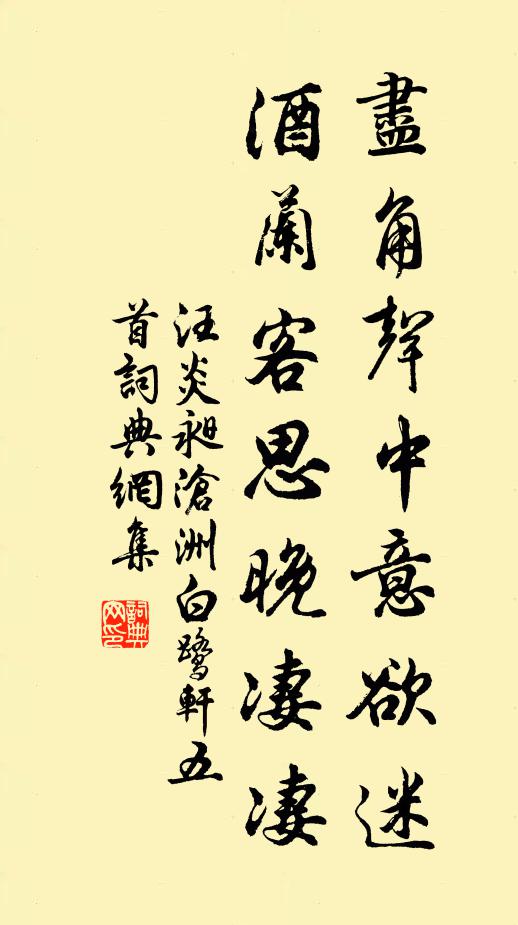 盡角聲中意欲迷
酒蘭客思晚凄凄
汪炎昶滄洲白鷺軒五
首詞典網集
詞典
网印